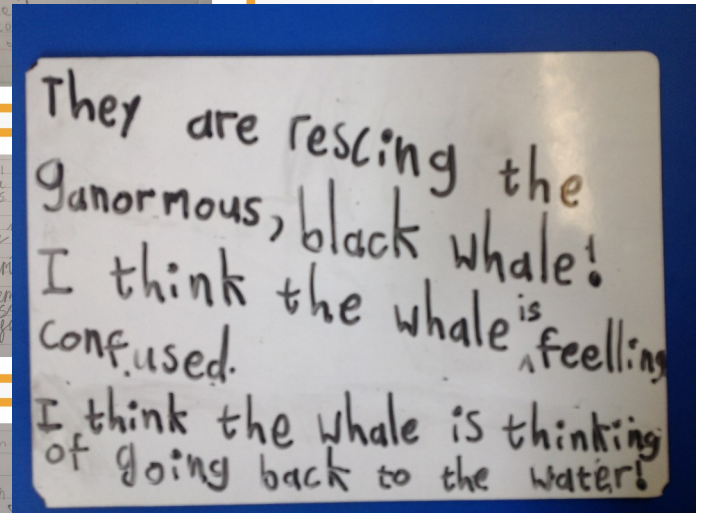 They are rescing the
ganormous, black whale!
I think the whale is feelling
confused.
I think the whale is thinking
of going back to the water!